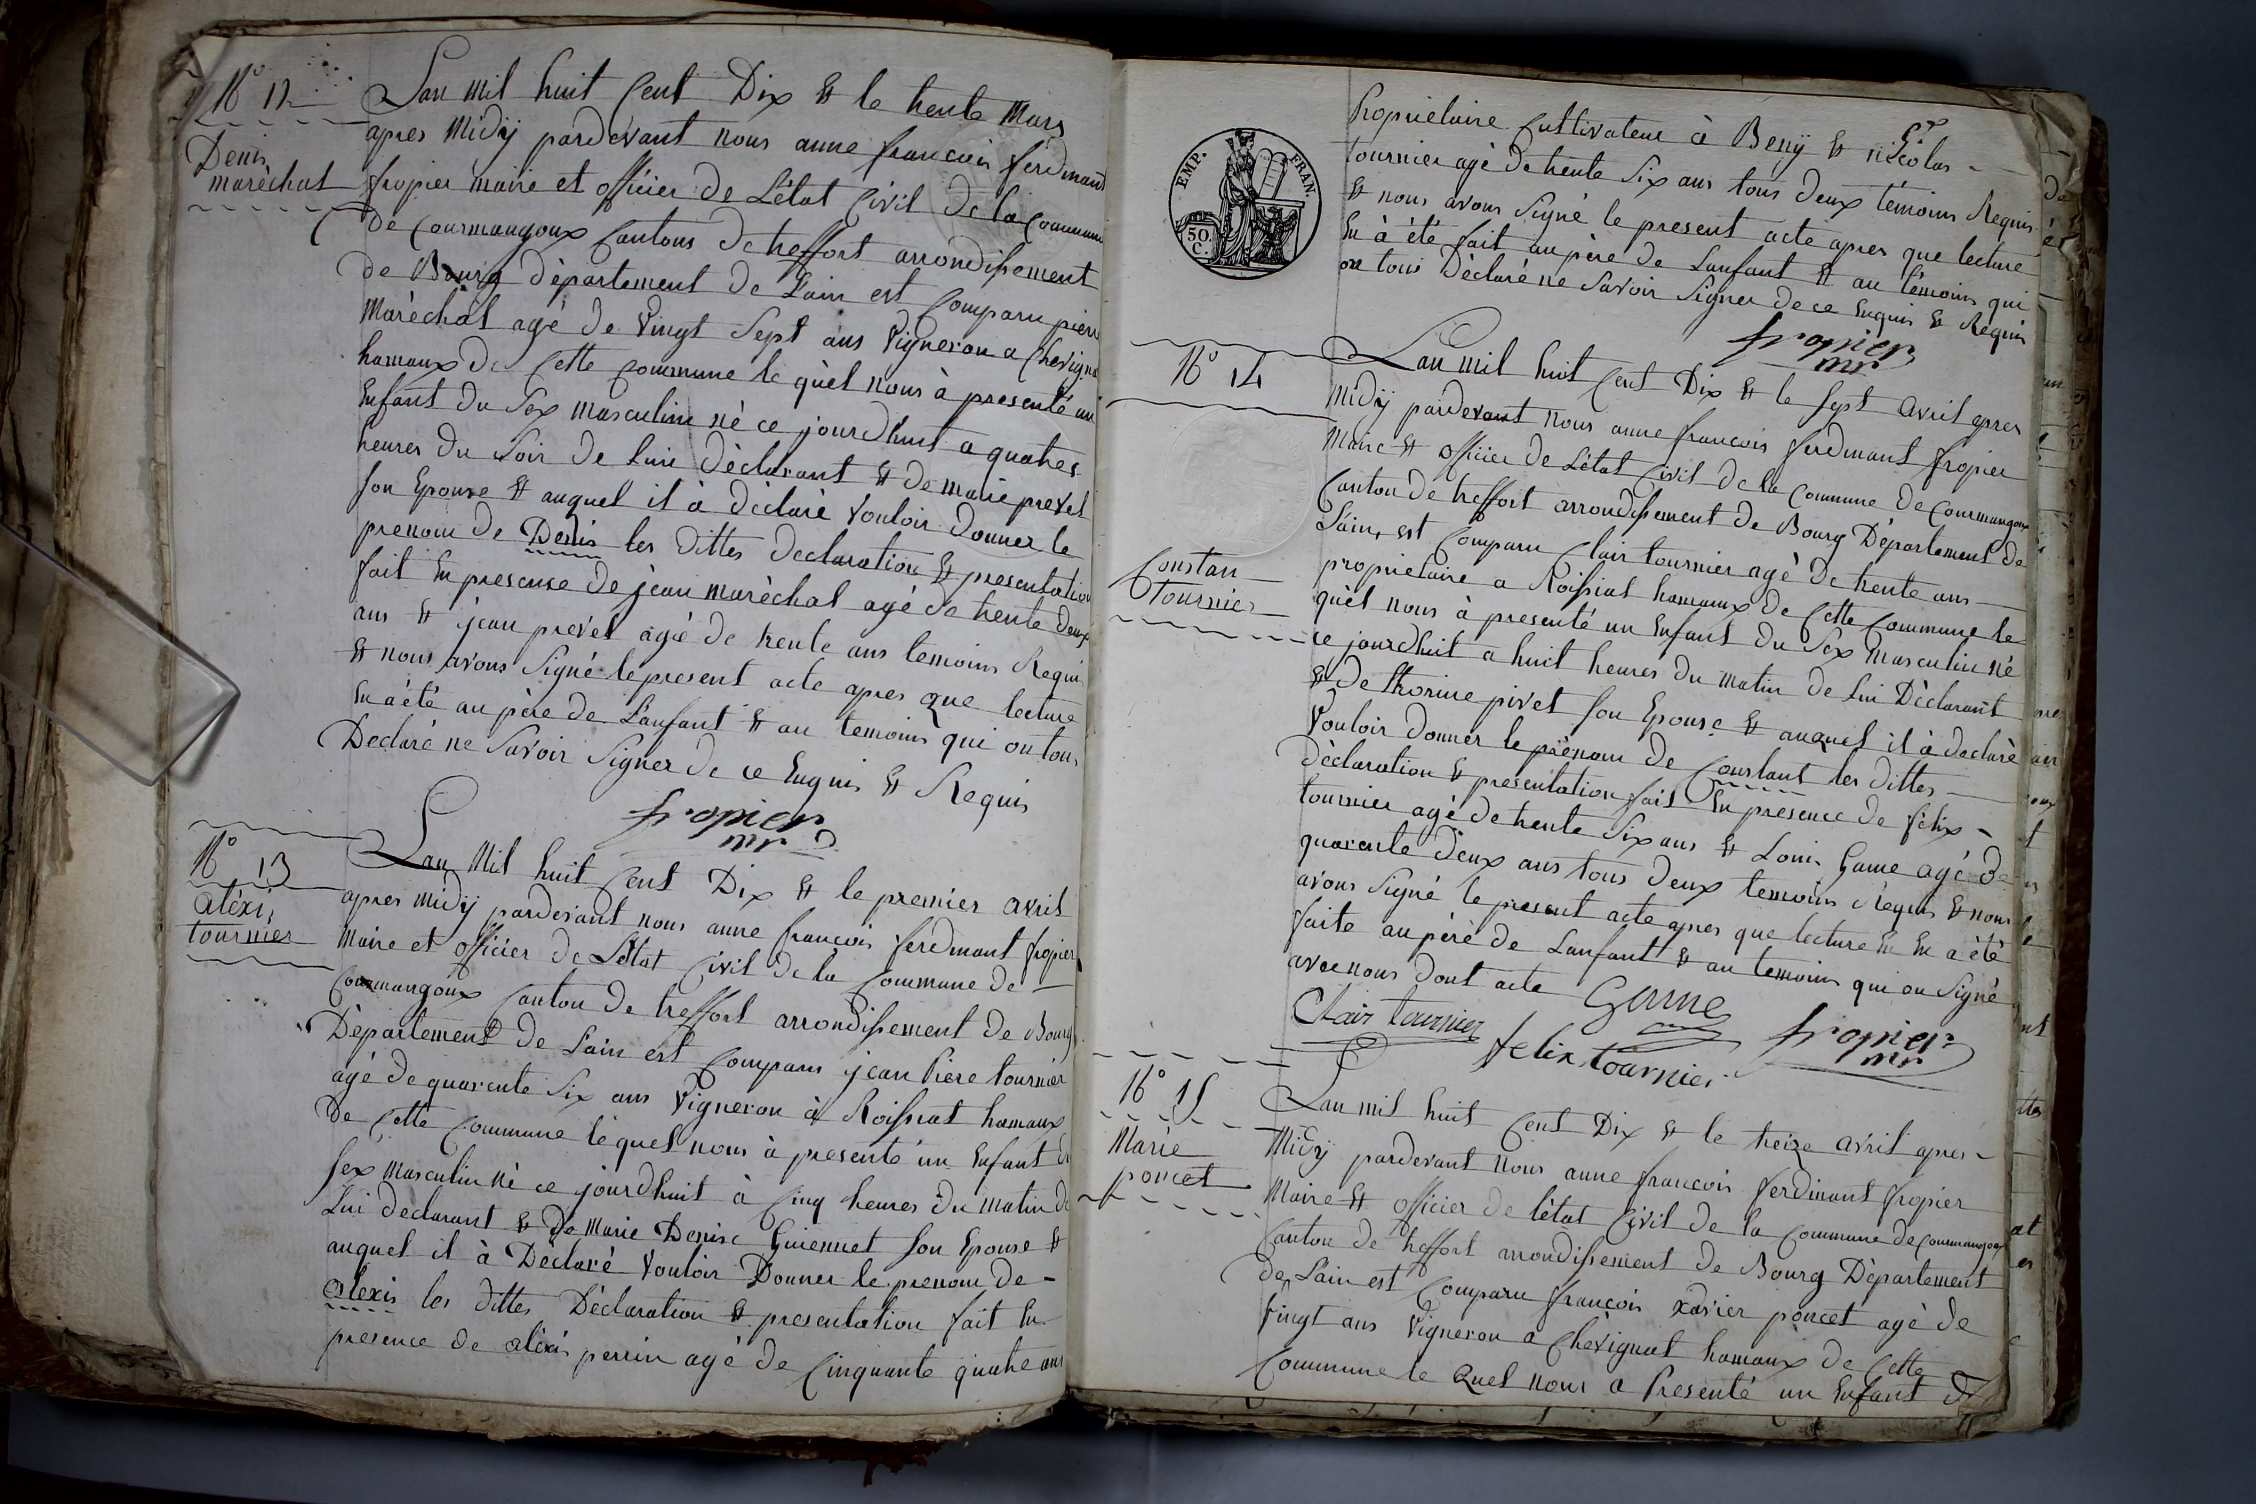 N° 12
Denis
maréchal
Lan mil huit Cent Dix & le trente Mars
apres Midÿ pardevant nous anne francois ferdinand
fropier maire et officier de Létat Civil de la Commune
de Courmangoux Cantons de treffort arrondissement
de Bourg département de Lain est Comparu pierre
Maréchal agé de Vingt Sept ans Vigneron a Chevignat
hamaux de Cette Commune le quèl nous à presenté un
Enfant du Sex masculin né ce jourdhuit a quatres
heures du Soir de Luii déclarant & de marie prevel
son Epouse & auquel il à déclaré Vouloir donner le
prenom de Denis les dittes declaration & presentation
fait En presense de jean maréchal agé de trente deux
ans & jean prevel agé de trente ans temoins Requis
& nous avons Signé le present acte apres que lecture
En a été au père de Lanfant & au temoins qui on tous
Declaré ne Savoir Signer de ce Enquis & Requis
fropier
mr
N° 13
aléxis
tournier
Lan Mil huit Cent Dix & le premier avril
apres midÿ pardevant nous anne francois ferdinant fropier
Maire et officier de Létat Civil de la Commune de
Courmangoux Canton de treffort arrondissement de Bourg
Département de Lain est Comparu jean Piere tournier
agé de quarente Six ans Vigneron à Roissiat hamaux
de Cette Commune léquel nous à presenté un Enfant du
sex masculin né ce jourdhuit à Cinq heures du matin de
Lui déclarant & de Marie Denise Guiennet son Epouse &
auquel il à Déclaré Vouloir Donner le prenom de -
alexis les dittes Déclaration & presentation fait En
presence de aléxis perrin agé de Cinquante quatre ans
EMP. FRAN.
50. C.
Proprietaire Cultivateur à Benÿ & nicolas
tournier agé de trente Six ans tous deux témoins Requis
& nous avons Signé le present acte apres que lecture
En à été fait au père de Lanfant & au témoins qui
on tous Déclaré ne Savoir Signer de ce Enquis & Requis
fropier
mr
N° 14
Constan
tournier
Lan mil huit Cent Dix & le Sept avril apres
Midÿ pardevant nous anne francois ferdinant fropier
Maire & officier de Létat Civil de la Commune de Courmangoux
Canton de treffort arrondissement de Bourg Département de
Lain, est Comparu Clair tournier agé de trente ans
proprietaire a Roissiat hamaux de Cette Commune le
quèl nous à presenté un Enfant du Sex Masculin né
ce jourdhuit a huit heures du matin de Lui Déclarant
& de pivet son Epouse & auquel il à declaré
Vouloir donner le prénom de Constant les dittes
déclaration & presentation fait En presence de félix
tournier agé de trente Six ans & Louis Game agé de
quarente deux ans tous deux temoins réquis & nous
avons Signé le present acte apres que lecture En En a été
faite au père de Lanfant & au temoins qui on Signé
avec nous dont acte
Game
Clair tournier
felix tournier
fropier
mr
N° 15
Marie
poncet
Lan mil huit Cent Dix & le treize avril apres
Midÿ pardevant nous anne francois ferdinant fropier
Maire & officier de létat Civil de la Commune de Courmangoux
Canton de treffort arrondissement de Bourg Département
de Lain est Comparu francois xavier poncet agé de
Vingt ans Vigneron a Chévignat hamaux de Cette
Commune le quel nous a Presenté un Enfant